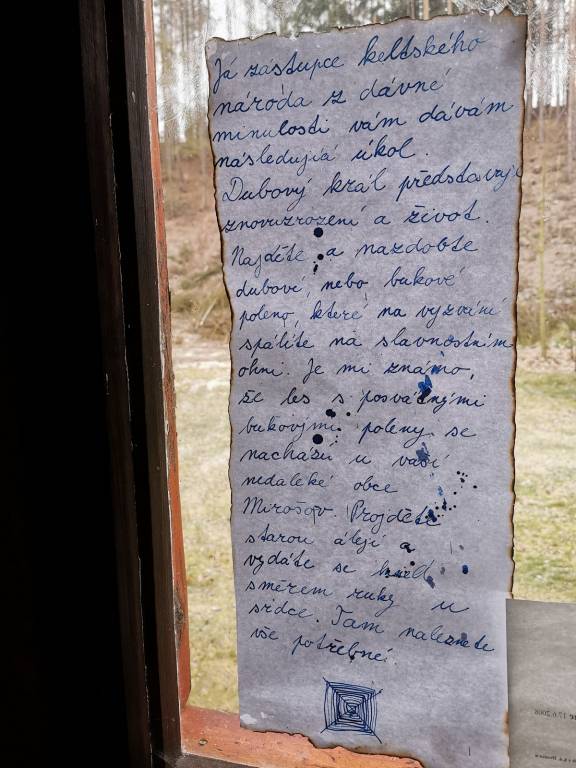 Já zástupce keltského
národa z dávné
minulosti vám dávám
následující úkol.
Dubový král představuje
znovuzrození a život.
Najděte a nazdobte
dubové, nebo bukové
poleno, které na vyzvání
spálíte na slavnostním
ohni. Je mi známo,
že les s posvátnými
bukovými poleny se
nachází u vaší
nedaleké obce
Mirošov. Projděte
starou alejí a
vydáte se hned
směrem ruky u
srdce. Tam naleznete
vše potřebné.
17.6.2008